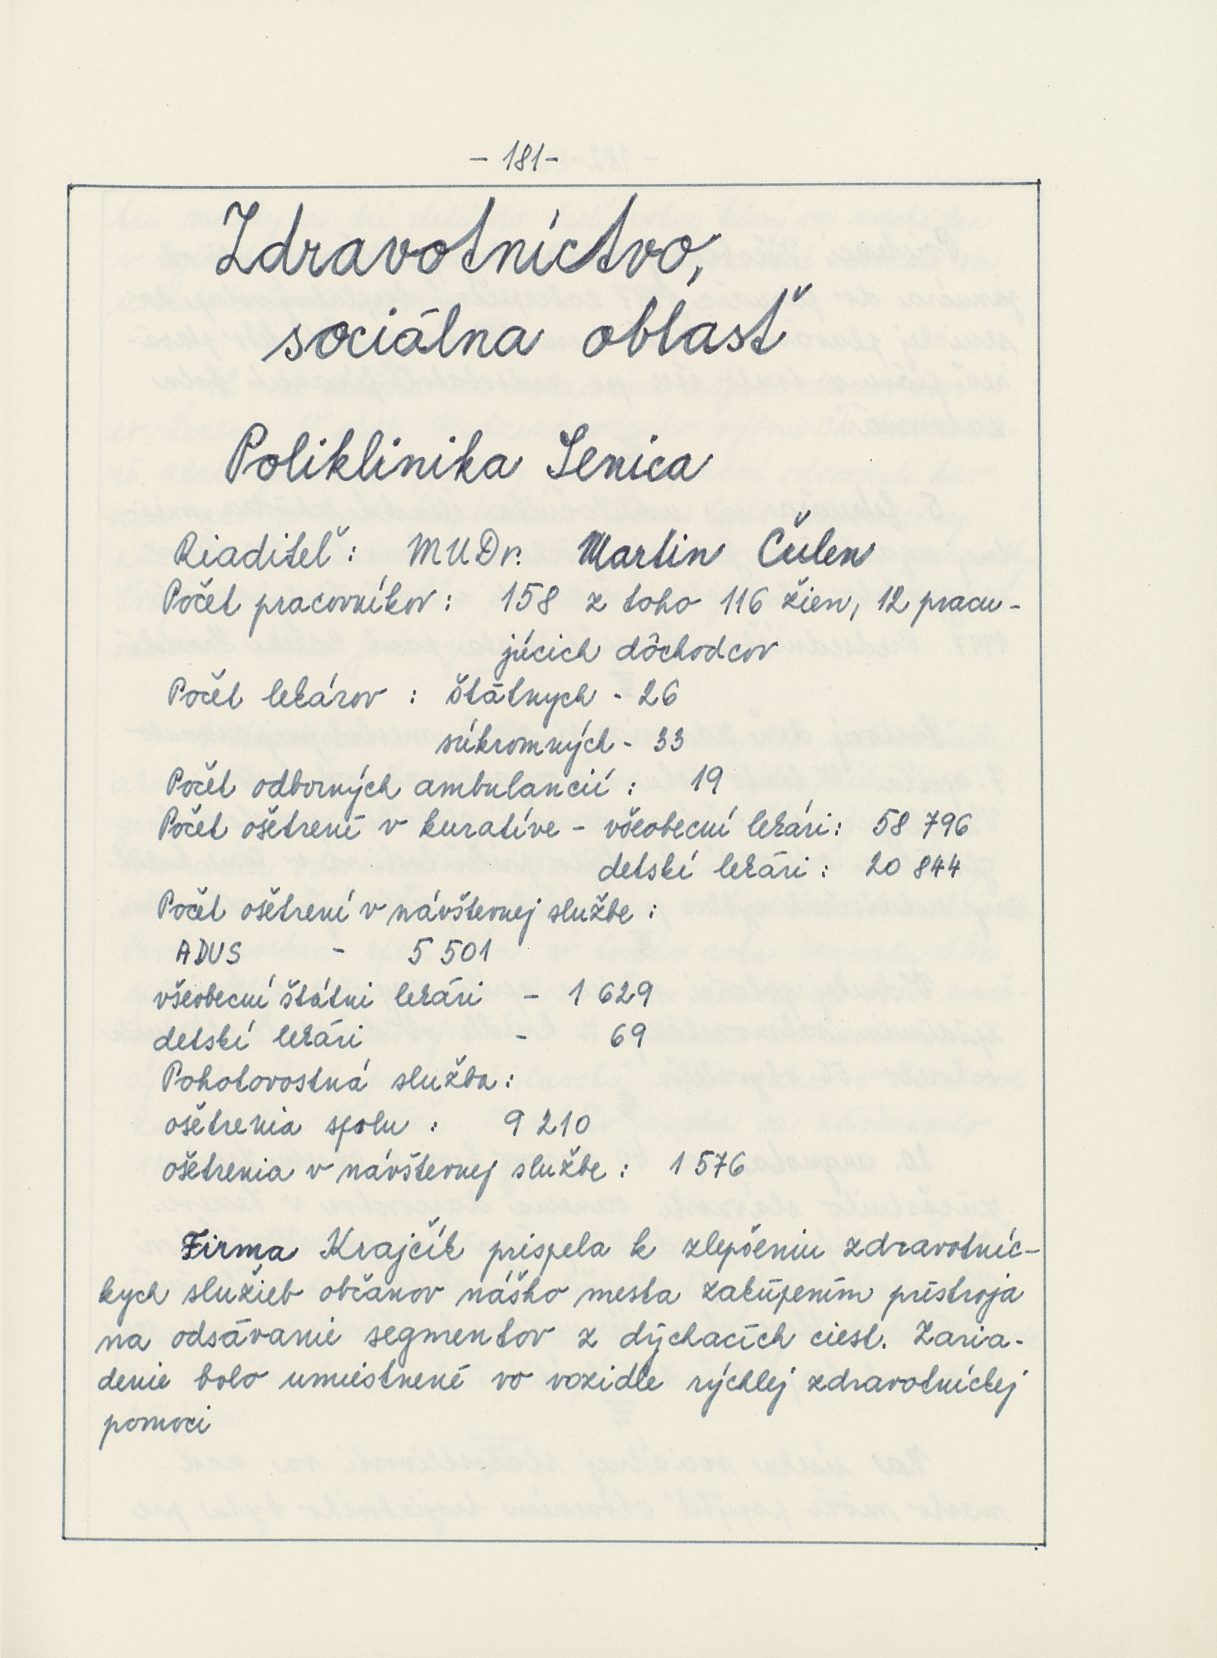 - 181 -
Zdravotníctvo,
sociálna oblasť
Poliklinika Senica
Riaditeľ: MUDr. Martin Čulen
Počet pracovníkov: 158 z toho 116 žien, 12 pracu-
júcich dôchodcov
Počet lekárov: štátnych - 26
súkromných - 33
Počet odborných ambulancií: 19
Počet ošetrení v kuratíve - všeobecní lekári: 58 796
detskí lekári: 20 844
Počet ošetrení v návštevnej službe:
ADUS - 5 501
všeobecní štátni lekári - 1 629
detskí lekári - 69
Pohotovostná služba:
ošetrenia spolu: 9 210
ošetrenia v návštevnej službe: 1 576
Firma Krajčík prispela k zlepšeniu zdravotníc-
kych služieb občanov nášho mesta zakúpením prístroja
na odsávanie segmentov z dýchacích ciest. Zaria-
denie bolo umiestnené vo vozidle rýchlej zdravotníckej
pomoci